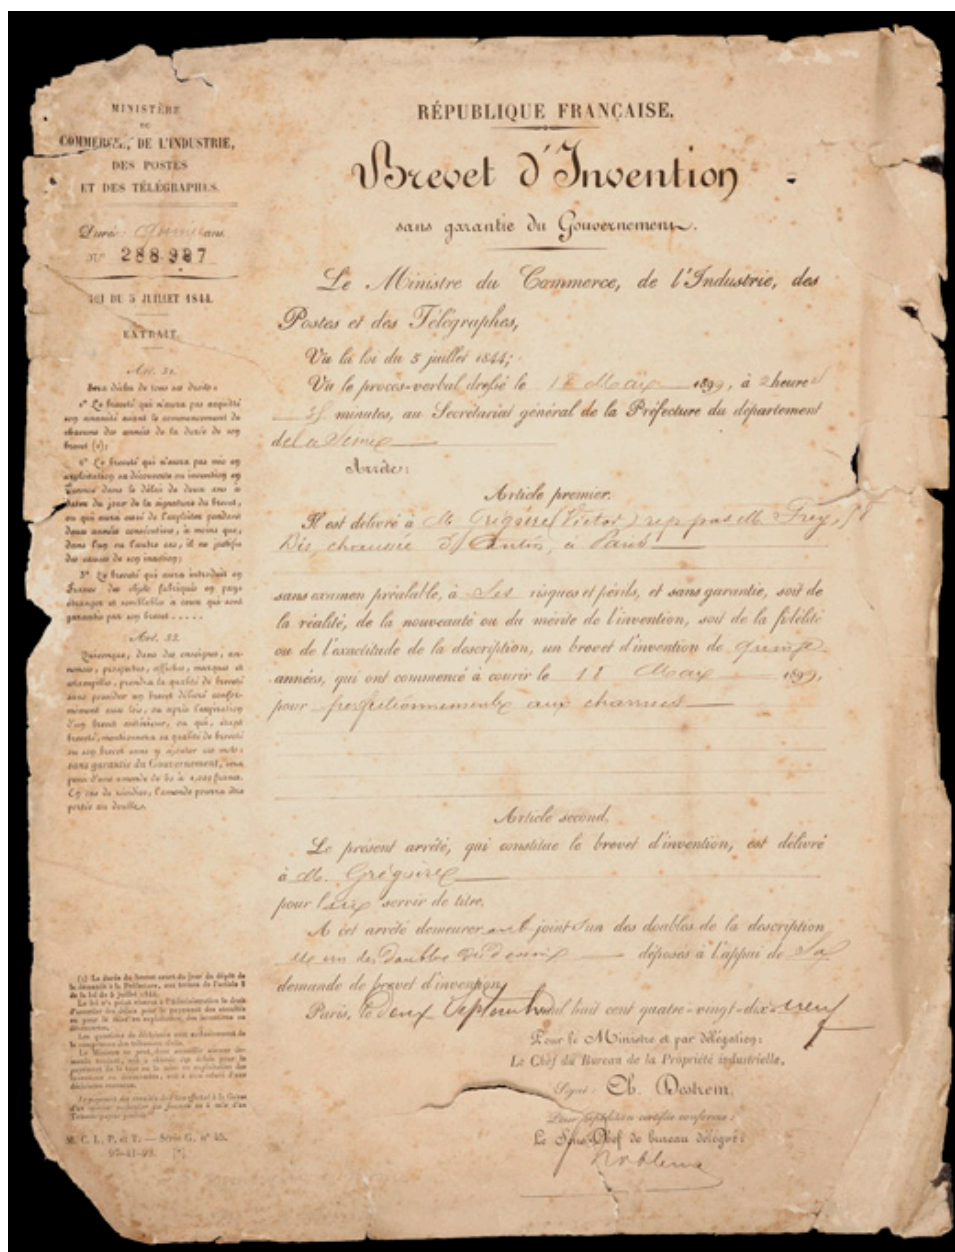 MINISTÈRE
DU
COMMERCE, DE L'INDUSTRIE,
DES POSTES
ET DES TÉLÉGRAPHES.
Durée: Quinze ans
N° 288.987
LOI DU 5 JUILLET 1844.
EXTRAIT.
Art. 32.
Sera déchu de tous ses droits:
1° Le breveté qui n'aura pas acquitté
son annuité avant le commencement de
chacune des années de la durée de son
brevet (1);
2° Le breveté qui n'aura pas mis en
exploitation sa découverte ou invention en
France dans le délai de deux ans à
dater du jour de la signature du brevet,
ou qui aura cessé de l'exploiter pendant
deux années consécutives, à moins que,
dans l'un ou l'autre cas, il ne justifie
des causes de son inaction;
3° Le breveté qui aura introduit en
France des objets fabriqués en pays
étranger et semblables à ceux qui sont
garantis par son brevet.....
Art. 33.
Quiconque, dans des enseignes, an-
nonces, prospectus, affiches, marques et
estampilles, prendra la qualité de breveté
sans posséder un brevet délivré confor-
mément aux lois, ou après l'expiration
d'un brevet antérieur, ou qui, étant
breveté, mentionnera sa qualité de breveté
ou son brevet sans y ajouter ces mots:
sans garantie du Gouvernement, sera
puni d'une amende de 50 à 1,000 francs.
En cas de récidive, l'amende pourra être
portée au double.
(1) La durée du brevet court du jour du dépôt de
la demande à la Préfecture, aux termes de l'article 8
de la loi du 5 juillet 1844.
La loi n'a point réservé à l'Administration le droit
M. C. I., P. et T. — Série G, n° 45.
RÉPUBLIQUE FRANÇAISE.
Brevet d'Invention
sans garantie du Gouvernement.
Le Ministre du Commerce, de l'Industrie, des
Postes et des Télégraphes,
Vu la loi du 5 juillet 1844;
Vu le procès-verbal dressé le 18 Mai 1899, à 2 heures
minutes, au Secrétariat général de la Préfecture du département
de la Seine
Arrête:
Article premier.
Il est délivré à M. Grégoire (Victor) rep. par M. Frey,
Bis, chaussée d'Antin, à Paris
sans examen préalable, à ses risques et périls, et sans garantie, soit de
la réalité, de la nouveauté ou du mérite de l'invention, soit de la fidélité
ou de l'exactitude de la description, un brevet d'invention de quinze
années, qui ont commencé à courir le 18 Mai 1899,
pour perfectionnements aux charrues
Article second.
Le présent arrêté, qui constitue le brevet d'invention, est délivré
à M. Grégoire
pour lui servir de titre.
A cet arrêté demeurera joint un des doubles de la description
et un des doubles du dessin déposés à l'appui de sa
demande de brevet d'invention.
Paris, le deux Septembre mil huit cent quatre-vingt-dix-neuf
Pour le Ministre et par délégation:
Le Chef du Bureau de la Propriété industrielle,
Signé: Ch. Destrem.
Pour expédition certifiée conforme:
Le Sous-Chef de bureau délégué: